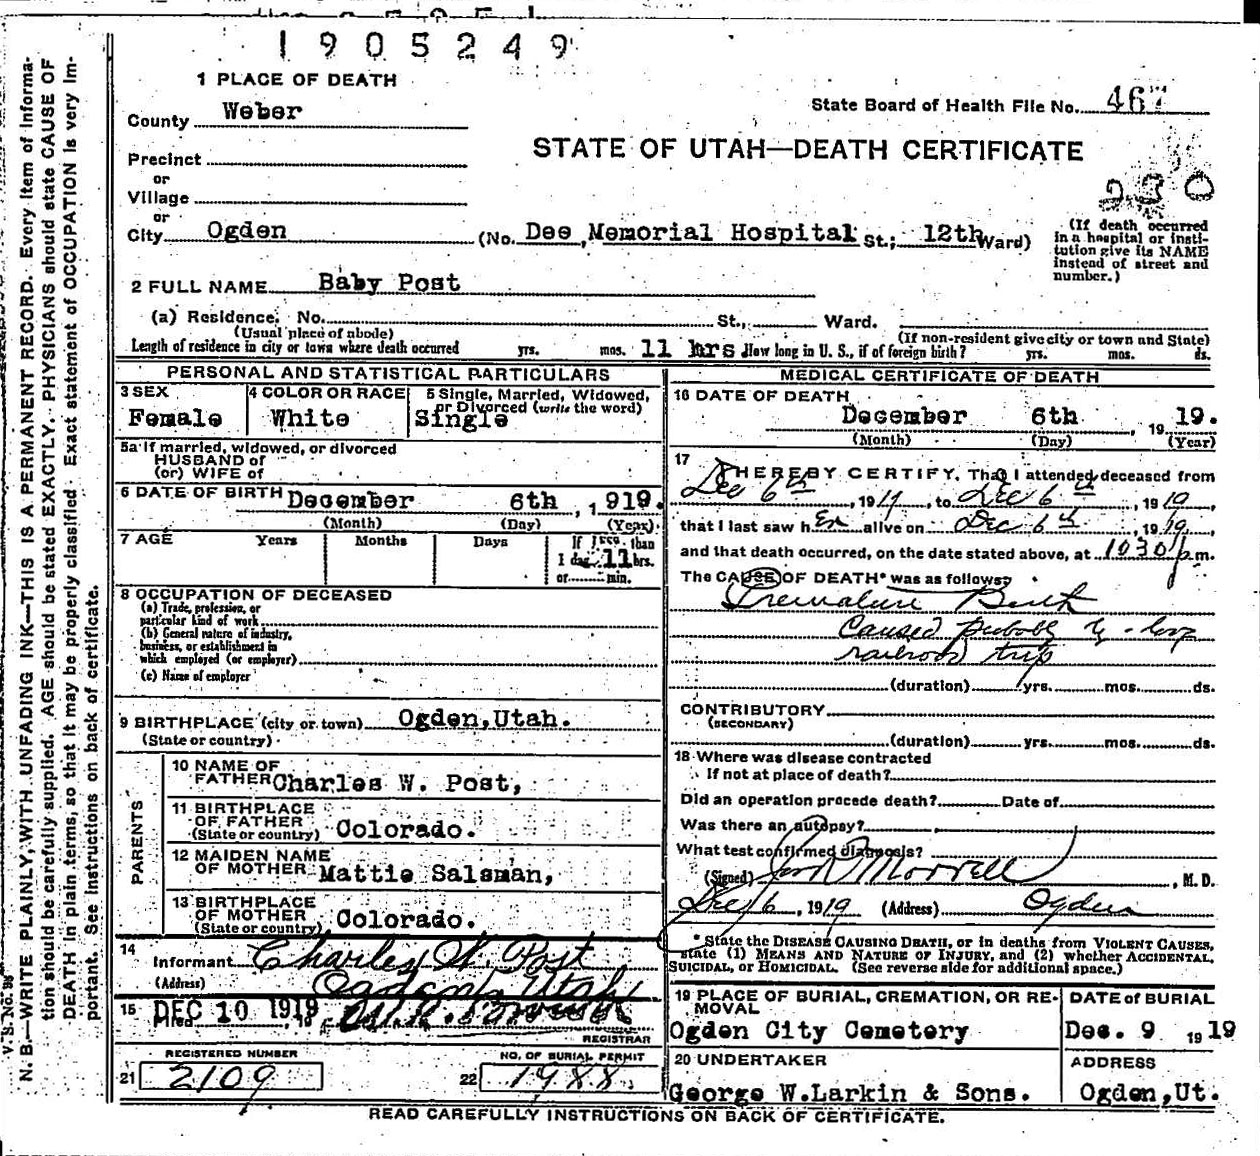 1905249
1 PLACE OF DEATH
County Weber
State Board of Health File No. 467
STATE OF UTAH—DEATH CERTIFICATE
230
Precinct
or
Village
or
City Ogden (No. Dee Memorial Hospital St.; 12th Ward)
(If death occurred in a hospital or institution give its NAME instead of street and number.)
2 FULL NAME Baby Post
(a) Residence. No. St., Ward.
(Usual place of abode) (If non-resident give city or town and State)
Length of residence in city or town where death occurred yrs. mos. 11 hrs. How long in U. S., if of foreign birth? yrs. mos. ds.
PERSONAL AND STATISTICAL PARTICULARS
3 SEX Female
4 COLOR OR RACE White
5 Single, Married, Widowed, or Divorced (write the word) Single
5a If married, widowed, or divorced
HUSBAND of
(or) WIFE of
6 DATE OF BIRTH December 6th, 1919.
(Month) (Day) (Year)
7 AGE Years Months Days If less than 1 day 11 hrs. or min.
8 OCCUPATION OF DECEASED
(a) Trade, profession, or
particular kind of work
(b) General nature of industry,
business, or establishment in
which employed (or employer)
(c) Name of employer
9 BIRTHPLACE (city or town) Ogden, Utah.
(State or country)
PARENTS
10 NAME OF FATHER Charles W. Post,
11 BIRTHPLACE OF FATHER (State or country) Colorado.
12 MAIDEN NAME OF MOTHER Mattie Salsman,
13 BIRTHPLACE OF MOTHER (State or country) Colorado.
14 Informant Charles W. Post
(Address) Ogden Utah
15 Filed DEC 10 1919, 19
REGISTRAR
REGISTERED NUMBER
21 2109
NO. OF BURIAL PERMIT
22 1988
MEDICAL CERTIFICATE OF DEATH
16 DATE OF DEATH
December 6th, 1919.
(Month) (Day) (Year)
17 I HEREBY CERTIFY, That I attended deceased from
Dec 6th, 1919, to Dec 6th, 1919,
that I last saw her alive on Dec 6th, 1919,
and that death occurred, on the date stated above, at 1030 p.m.
The CAUSE OF DEATH* was as follows:
Premature Birth
Caused probably by long
railroad trip
(duration) yrs. mos. ds.
CONTRIBUTORY
(SECONDARY)
(duration) yrs. mos. ds.
18 Where was disease contracted
If not at place of death?
Did an operation precede death? Date of
Was there an autopsy?
What test confirmed diagnosis?
(Signed) Morrell, M. D.
Dec 6, 1919 (Address) Ogden
*State the DISEASE CAUSING DEATH, or in deaths from VIOLENT CAUSES,
state (1) MEANS AND NATURE OF INJURY, and (2) whether ACCIDENTAL,
SUICIDAL, or HOMICIDAL. (See reverse side for additional space.)
19 PLACE OF BURIAL, CREMATION, OR REMOVAL
Ogden City Cemetery
DATE of BURIAL
Dec. 9 1919
20 UNDERTAKER
George W. Larkin & Sons.
ADDRESS
Ogden, Ut.
READ CAREFULLY INSTRUCTIONS ON BACK OF CERTIFICATE.
V. S. No. 98
N. B.—WRITE PLAINLY, WITH UNFADING INK—THIS IS A PERMANENT RECORD. Every item of informa-
tion should be carefully supplied. AGE should be stated EXACTLY. PHYSICIANS should state CAUSE OF
DEATH in plain terms, so that it may be properly classified. Exact statement of OCCUPATION is very im-
portant. See instructions on back of certificate.